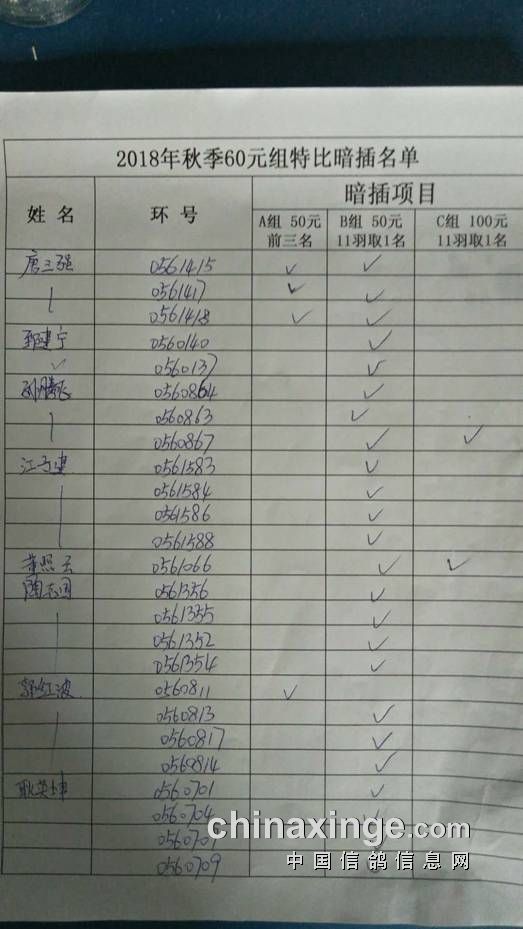 2018年秋季60元组特比暗插名单
姓 名 环 号 暗插项目
A组 50元 B组 50元 C组 100元
前三名 11羽取1名 11羽取1名
唐三强 0561415 ✓ ✓
0561417 ✓ ✓
0561418 ✓ ✓
建宁 0560140 ✓
✓ 0560137 ✓
刘腾飞 0560864 ✓
0560863 ✓
0560867 ✓ ✓
0561583 ✓
0561584 ✓
0561586 ✓
0561588 ✓
黄照云 0561066 ✓ ✓
陶志国 0561356 ✓
0561355 ✓
0561352 ✓
0561354 ✓
红波 0560811 ✓
0560813 ✓
0560817 ✓
0560814 ✓
耿英坤 0560701 ✓
0560704 ✓
chinaxinge.com
0560709 ✓
中国信鸽信息网